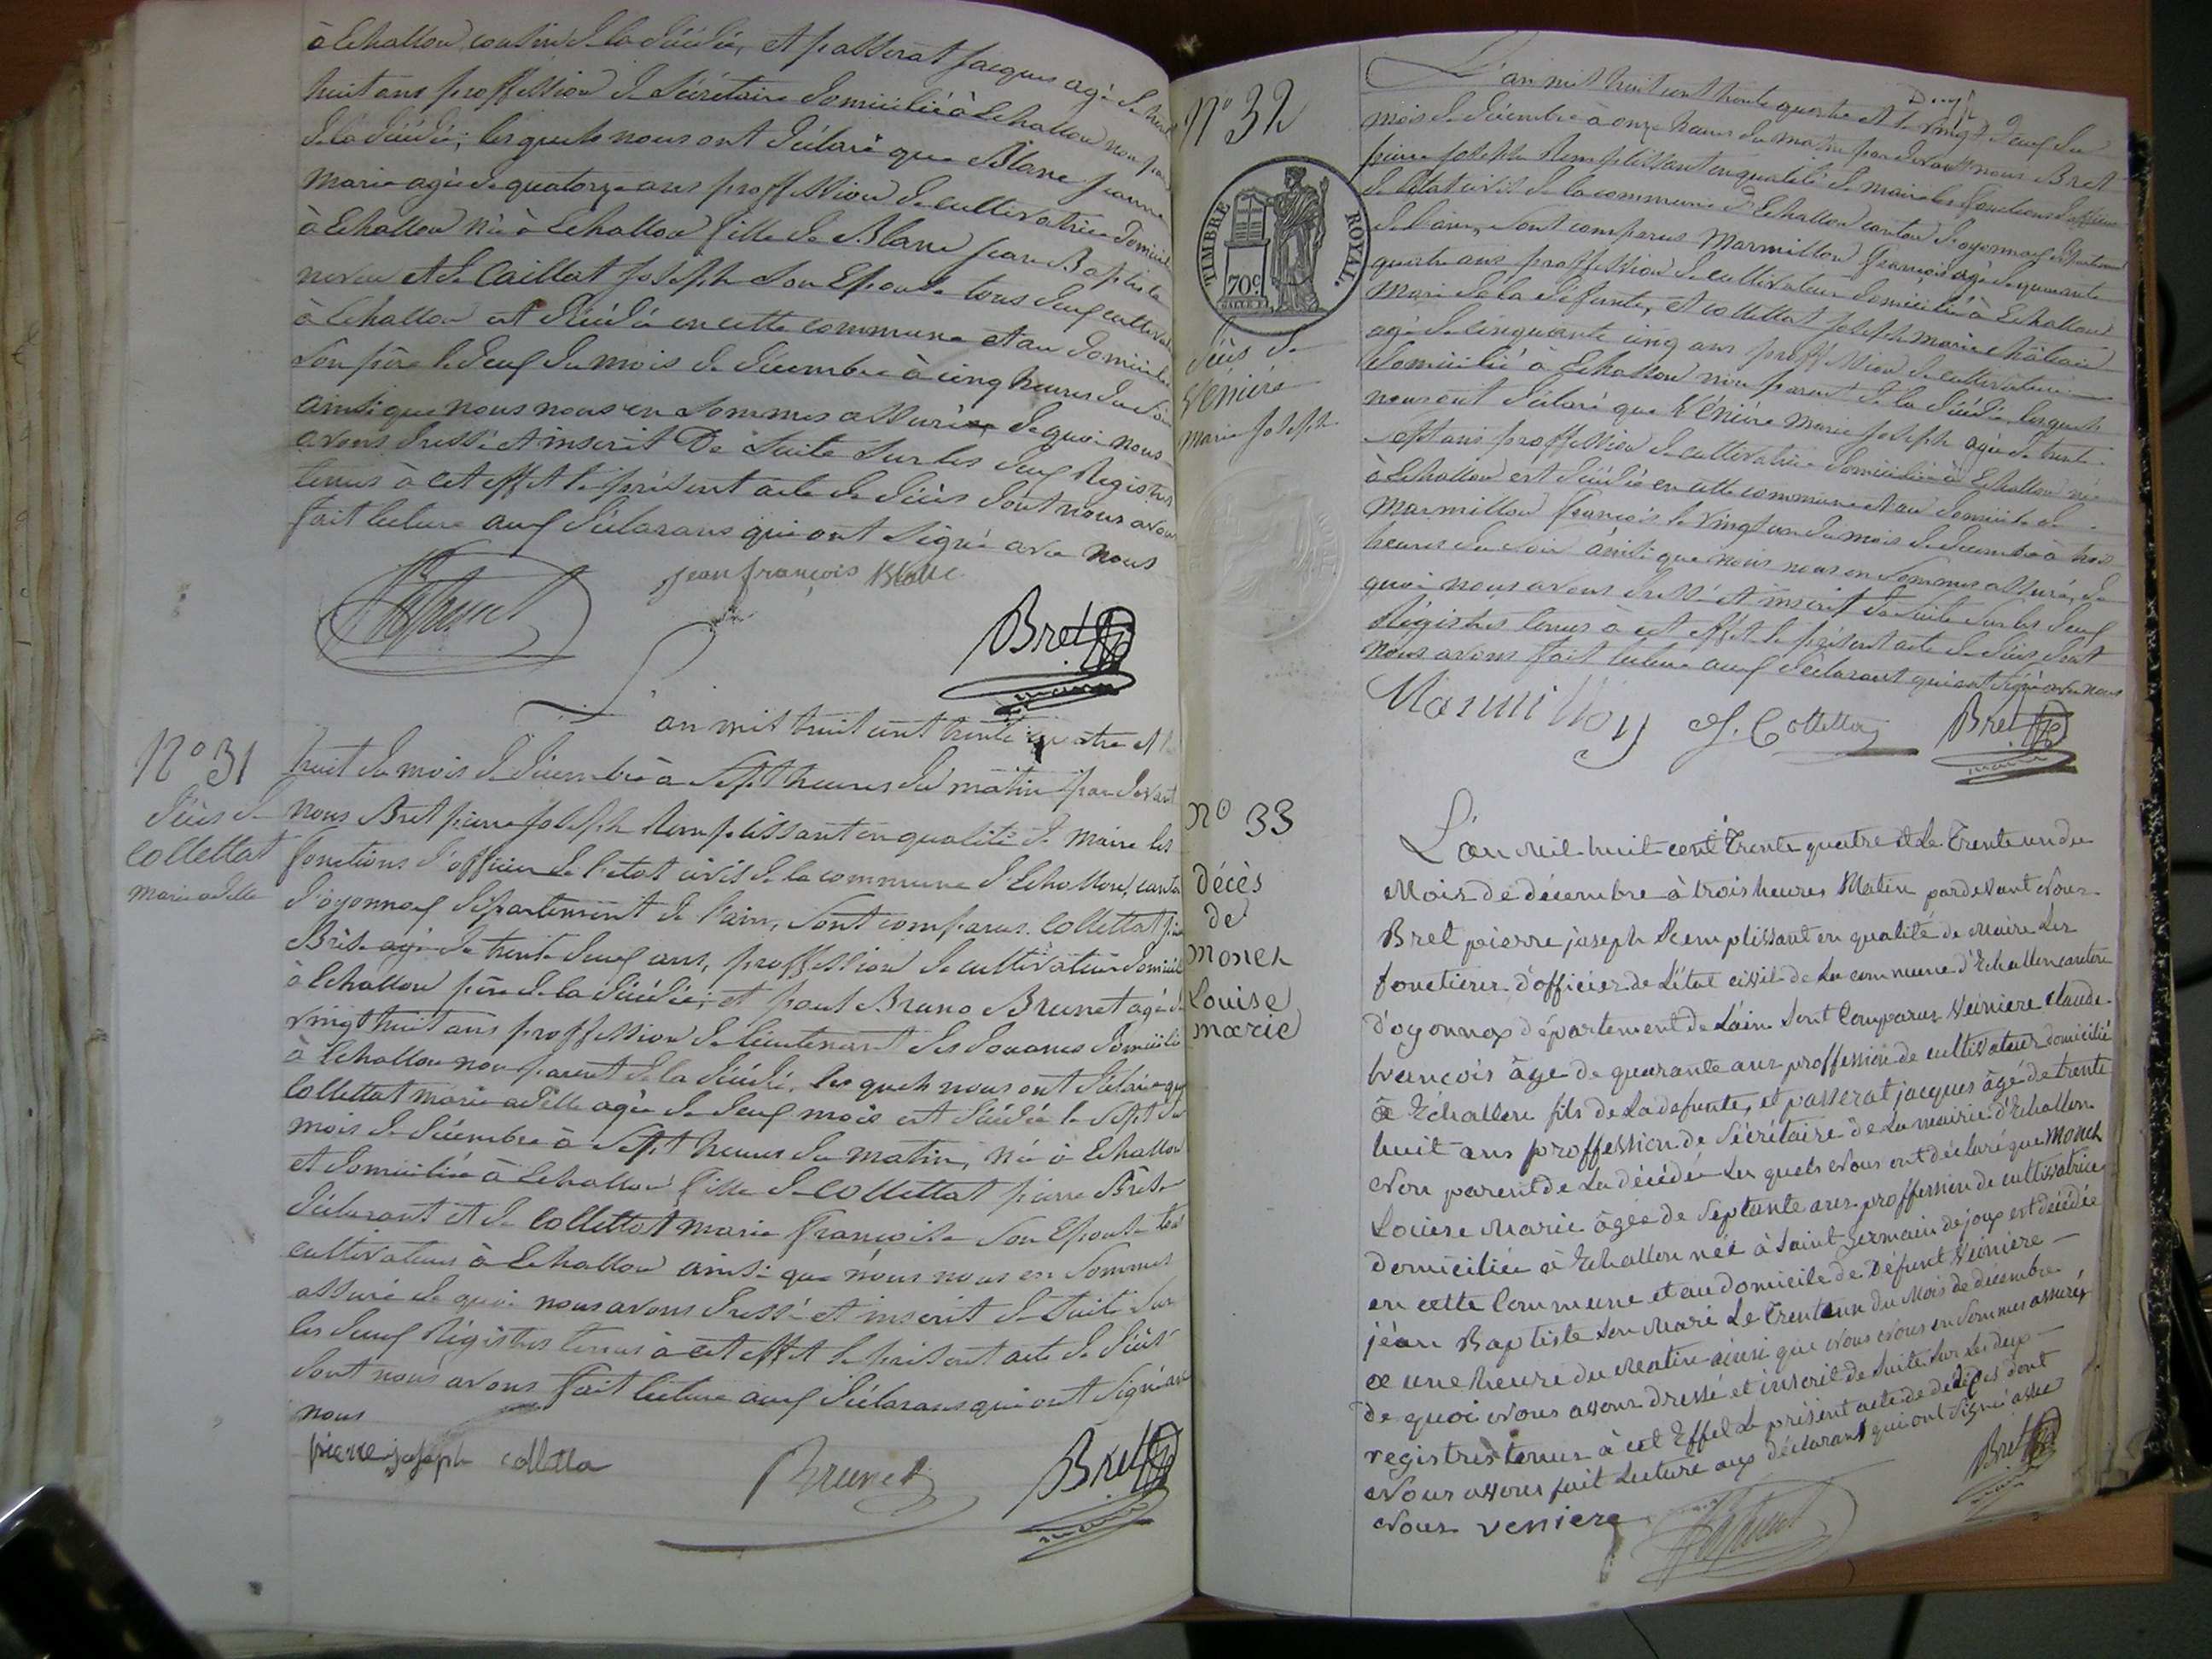 à Echallon cousin de la décédée, et passerat jacques agé de trente
huit ans proffession de Sécrétaire domicilié à Echallon non parent
de la décédée; lesquels nous ont déclaré que Blanc jeanne
marie agée de quatorze ans proffession de cultivatrice domicilié
à Echallon née à Echallon fille de Blanc jean Baptiste
et de Caillat joseph son Epouse tous deux cultivat
à Echallon est décédée en cette commune et au domicile de
son père le deux du mois de décembre à cinq heures du soir
ainsi que nous nous en sommes assuré de quoi nous
avons dressé et inscrit De suite sur les deux Registres
tenus à cet effet le présent acte de décès dont nous avons
fait lecture aux déclarans qui ont signé avec nous
jean françois Blanc
Bret
maire
L'an mil huit cent trente quatre et le
N° 31
huit du mois de décembre à sept heures du matin par devant
décès de
nous Bret pierre joseph Remplissant en qualité de maire les
Collettat
fonctions d'officier de l'état civil de la commune d'Echallon, canton
marie adelle
d'oyonnax département de l'ain, sont comparus Collettat pierre
agé de trente deux ans, proffession de cultivateur domicilié
à Echallon père de la décédée, et paul Bruno Brunet agé de
vingt huit ans proffession de lieutenant des douanes domicilié
à Echallon non parent de la décédé, lesquels nous ont déclaré que
Collettat marie adelle agée de deux mois est décédée le sept du
mois de décembre à sept heures du matin, né à Echallon
et domiciliée à Echallon fille de Collettat pierre
déclarant et de Collettat marie françoise son Epouse tous
cultivateurs à Echallon ainsi que nous nous en sommes
assuré de quoi nous avons dressé et inscrit de suite sur
les deux Régistres tenus à cet effet le présent acte de décès
dont nous avons fait lecture aux déclarans qui ont signé avec
nous
pierre joseph colletta
Brunet
Bret
maire
N° 32
TIMBRE ROYAL
70c
décès de
Vénière
marie joseph
L'an mil huit cent trente quatre et le vingt deux du
mois de décembre à onze heures du matin par devant nous Bret
pierre joseph Remplissant en qualité de maire les fonctions d'officier
de l'état civil de la commune d'Echallon canton d'oyonnax département
de l'ain, sont comparus Marmillon françois agé de quarante
quatre ans proffession de cultivateur domicilié à Echallon
mari de la défunte, et collettat joseph marie
agé de cinquante cinq ans proffession de cultivateur
domicilié à Echallon non parent de la décédée, lesquels
nous ont déclaré que Vénière marie joseph agée de trente
sept ans proffession de cultivatrice domiciliée à Echallon née
à Echallon est décédée en cette commune et au domicile de
Marmillon françois le vingt un du mois de décembre à trois
heures du soir ainsi que nous nous en sommes assuré, de
quoi nous avons dressé et inscrit de suite sur les deux
Régistres tenus à cet effet le présent acte de décès dont
nous avons fait lecture aux déclarant qui ont signé avec nous
Marmillon J. Colletta Bret
maire
N° 33
décès
de
monet
Louise
marie
L'an Mil huit cent Trente quatre et Le Trente un du
Mois de décembre à trois heures Matin pardevant Nous
Bret pierre joseph Remplissant en qualité de Maire Les
fonctions d'officier de L'état civil de La commune d'Echallon canton
d'oyonnax département de Lain Sont Comparus Vénière claude
francois âgé de quarante ans proffession de cultivateur domicilié
à Echallon fils de La defunte, et passerat jacques âgé de trente
huit ans proffession de Sécrétaire de La mairie d'Echallon
Non parent de La décédée Les quels Nous ont déclaré que Monet
Louise Marie âgée de Septante ans proffession de cultivatrice
domiciliée à Echallon née à Saint germain de joux est décédée
en cette Commune et au domicile de Défunt Vénière
jean Baptiste Son Mari Le Trente un du Mois de décembre
a une heure du Matin ainsi que Nous Nous en Sommes assurés
De quoi Nous avons dressé et inscrit de suite Sur Les deux
registres tenus à cet Effet Le présent acte de décès dont
Nous avons fait Lecture aux déclarans qui ont Signé avec
Nous veniere
Bret